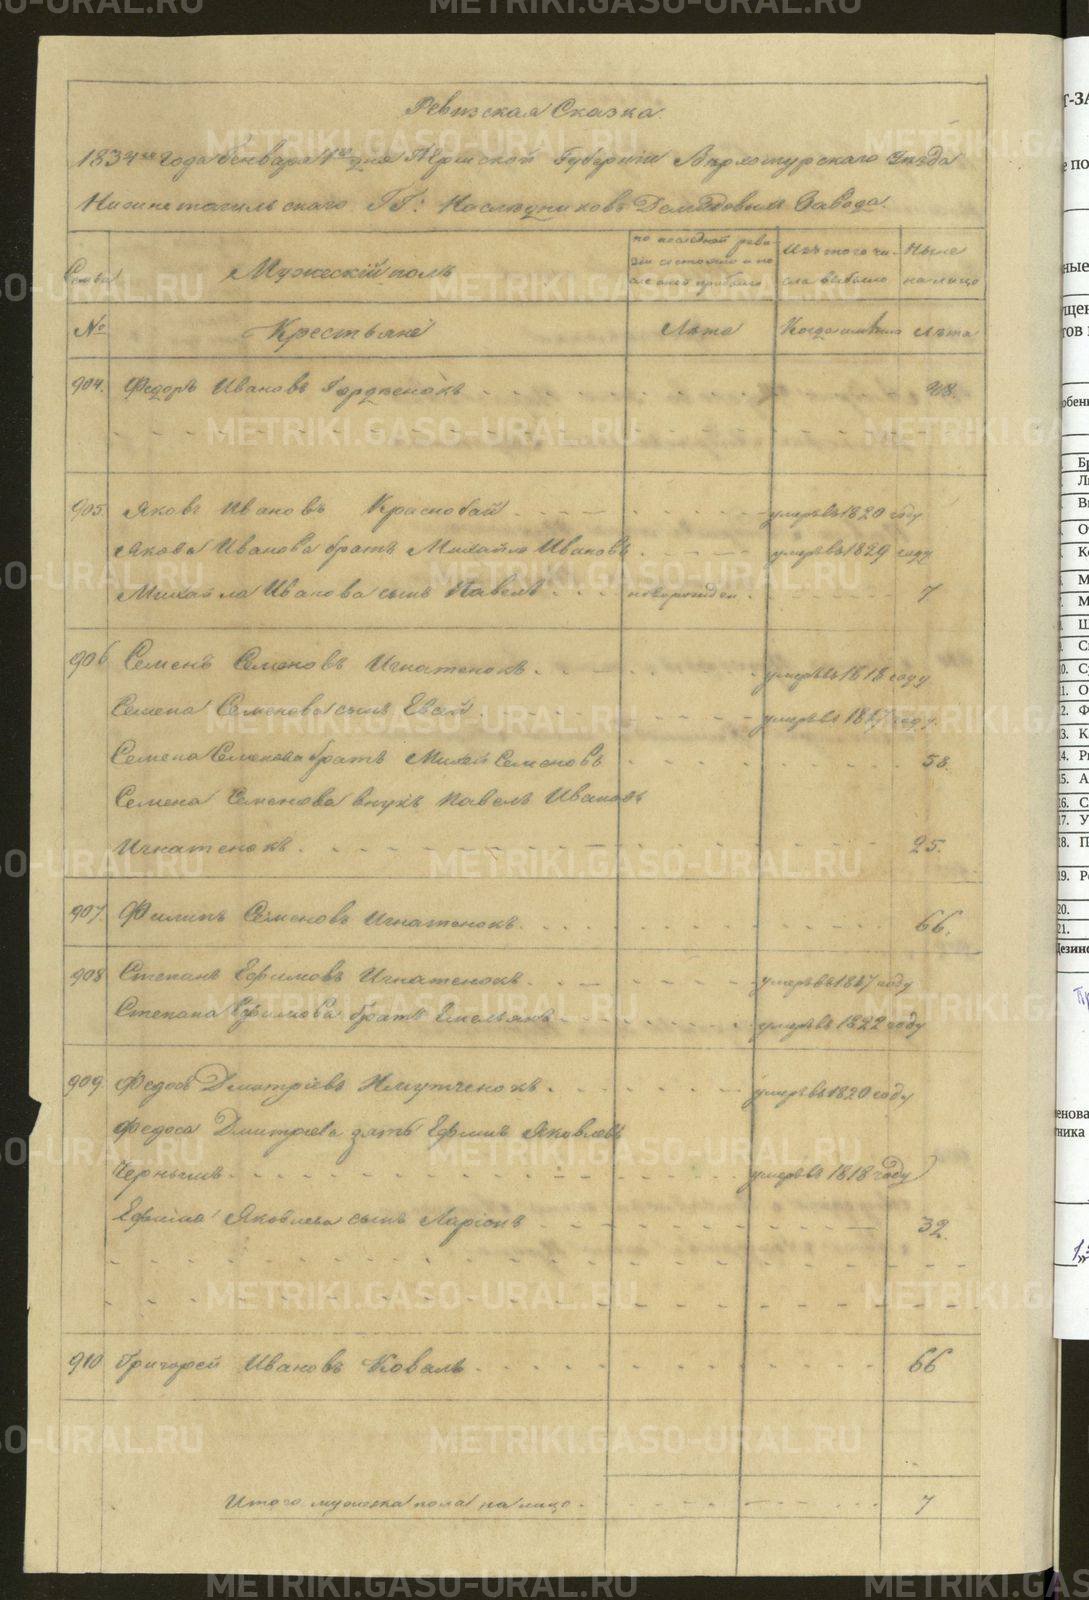 METRIKI.GASO-URAL.RU
Ревизская Сказка
1834го года Генваря 1го дня Пермской Губернiи Верхотурскаго Уезда
Нижнетагильскаго ГГ: Наследниковъ Демидовыхъ Завода.
Семьи
Мужескiй полъ
по последней реви-
зiи состояло и по-
сле оной прибыло
Изъ того чи-
сла выбыло
Ныне
на лицо
№
Крестьяне
Лета
Когда именно
Лета
904. Федоръ Ивановъ
905. Яковъ Ивановъ Краснобай умеръ въ 1820 году
Якова Иванова братъ Михайло Ивановъ умеръ въ 1829 году
Михайла Иванова сынъ Павелъ новорожден. 7
906. Семенъ Семеновъ Игнатенокъ умеръ въ 1818 году
Семена Семенова сынъ Евсей умеръ въ 1817 году
Семена Семенова братъ Михей Семеновъ 58.
Семена Семенова внукъ Павелъ Ивановъ
Игнатенокъ 25.
907. Филипъ Семеновъ Игнатенокъ 66.
908 Степанъ Ефимовъ Игнатенокъ умеръ въ 1817 году
Степана Ефимова братъ Емельянъ умеръ въ 1822 году
909. Федосъ Дмитрiевъ умеръ въ 1820 году
Федоса Дмитрiева зять Ефимъ Яковлевъ
Чернышъ умеръ въ 1818 году
Ефима Яковлева сынъ Ларiонъ 32.
910 Григорей Ивановъ Коваль 66
Итого мужеска пола на лицо 7